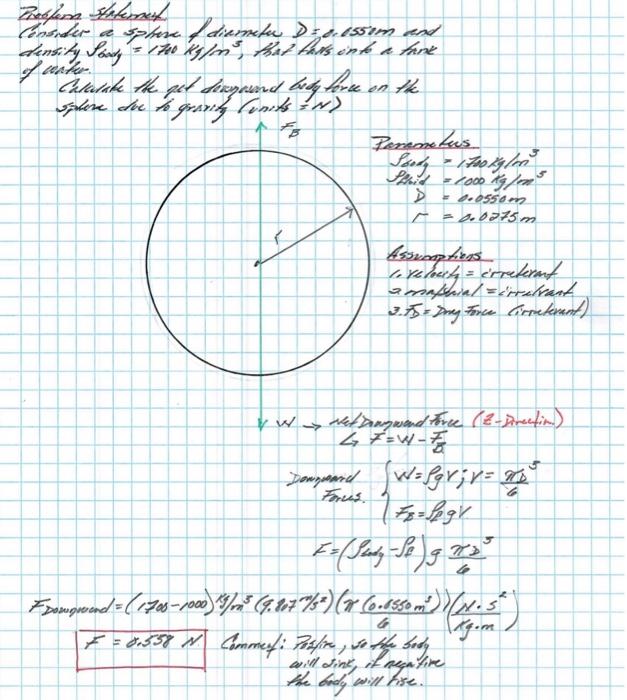 Problem Statement
Consider a sphere of diameter D = 0.0550m and
density ρbody = 1700 kg/m³, that falls into a tank
of water.
Calculate the net downward body force on the
sphere due to gravity (units = N)
F_B
r
Parameters
ρbody = 1700 kg/m³
ρfluid = 1000 kg/m³
D = 0.0550m
r = 0.0275m
Assumptions
1. velocity = irrelevant
2. material = irrelevant
3. F_D = Drag Force (irrelevant)
W → Net Downward Force (Z-Direction)
↳ F = W - F_B
Downward Forces.
W = ρgV; V = πD³/6
F_B = ρ_f gV
F = (ρbody - ρ_f) g πD³/6
F Downward = (1700-1000) kg/m³ (9.807 m/s²) (π (0.0550m³)/6) (N·s²/kg·m)
F = 0.558 N
Comment: Positive, so the body
will sink, if negative
the body will rise.